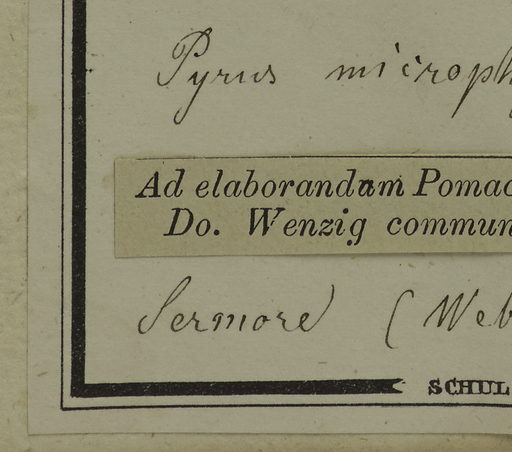 Pyrus microph
Ad elaborandam Pomac
Do. Wenzig commun
Sermore (Web
SCHUL